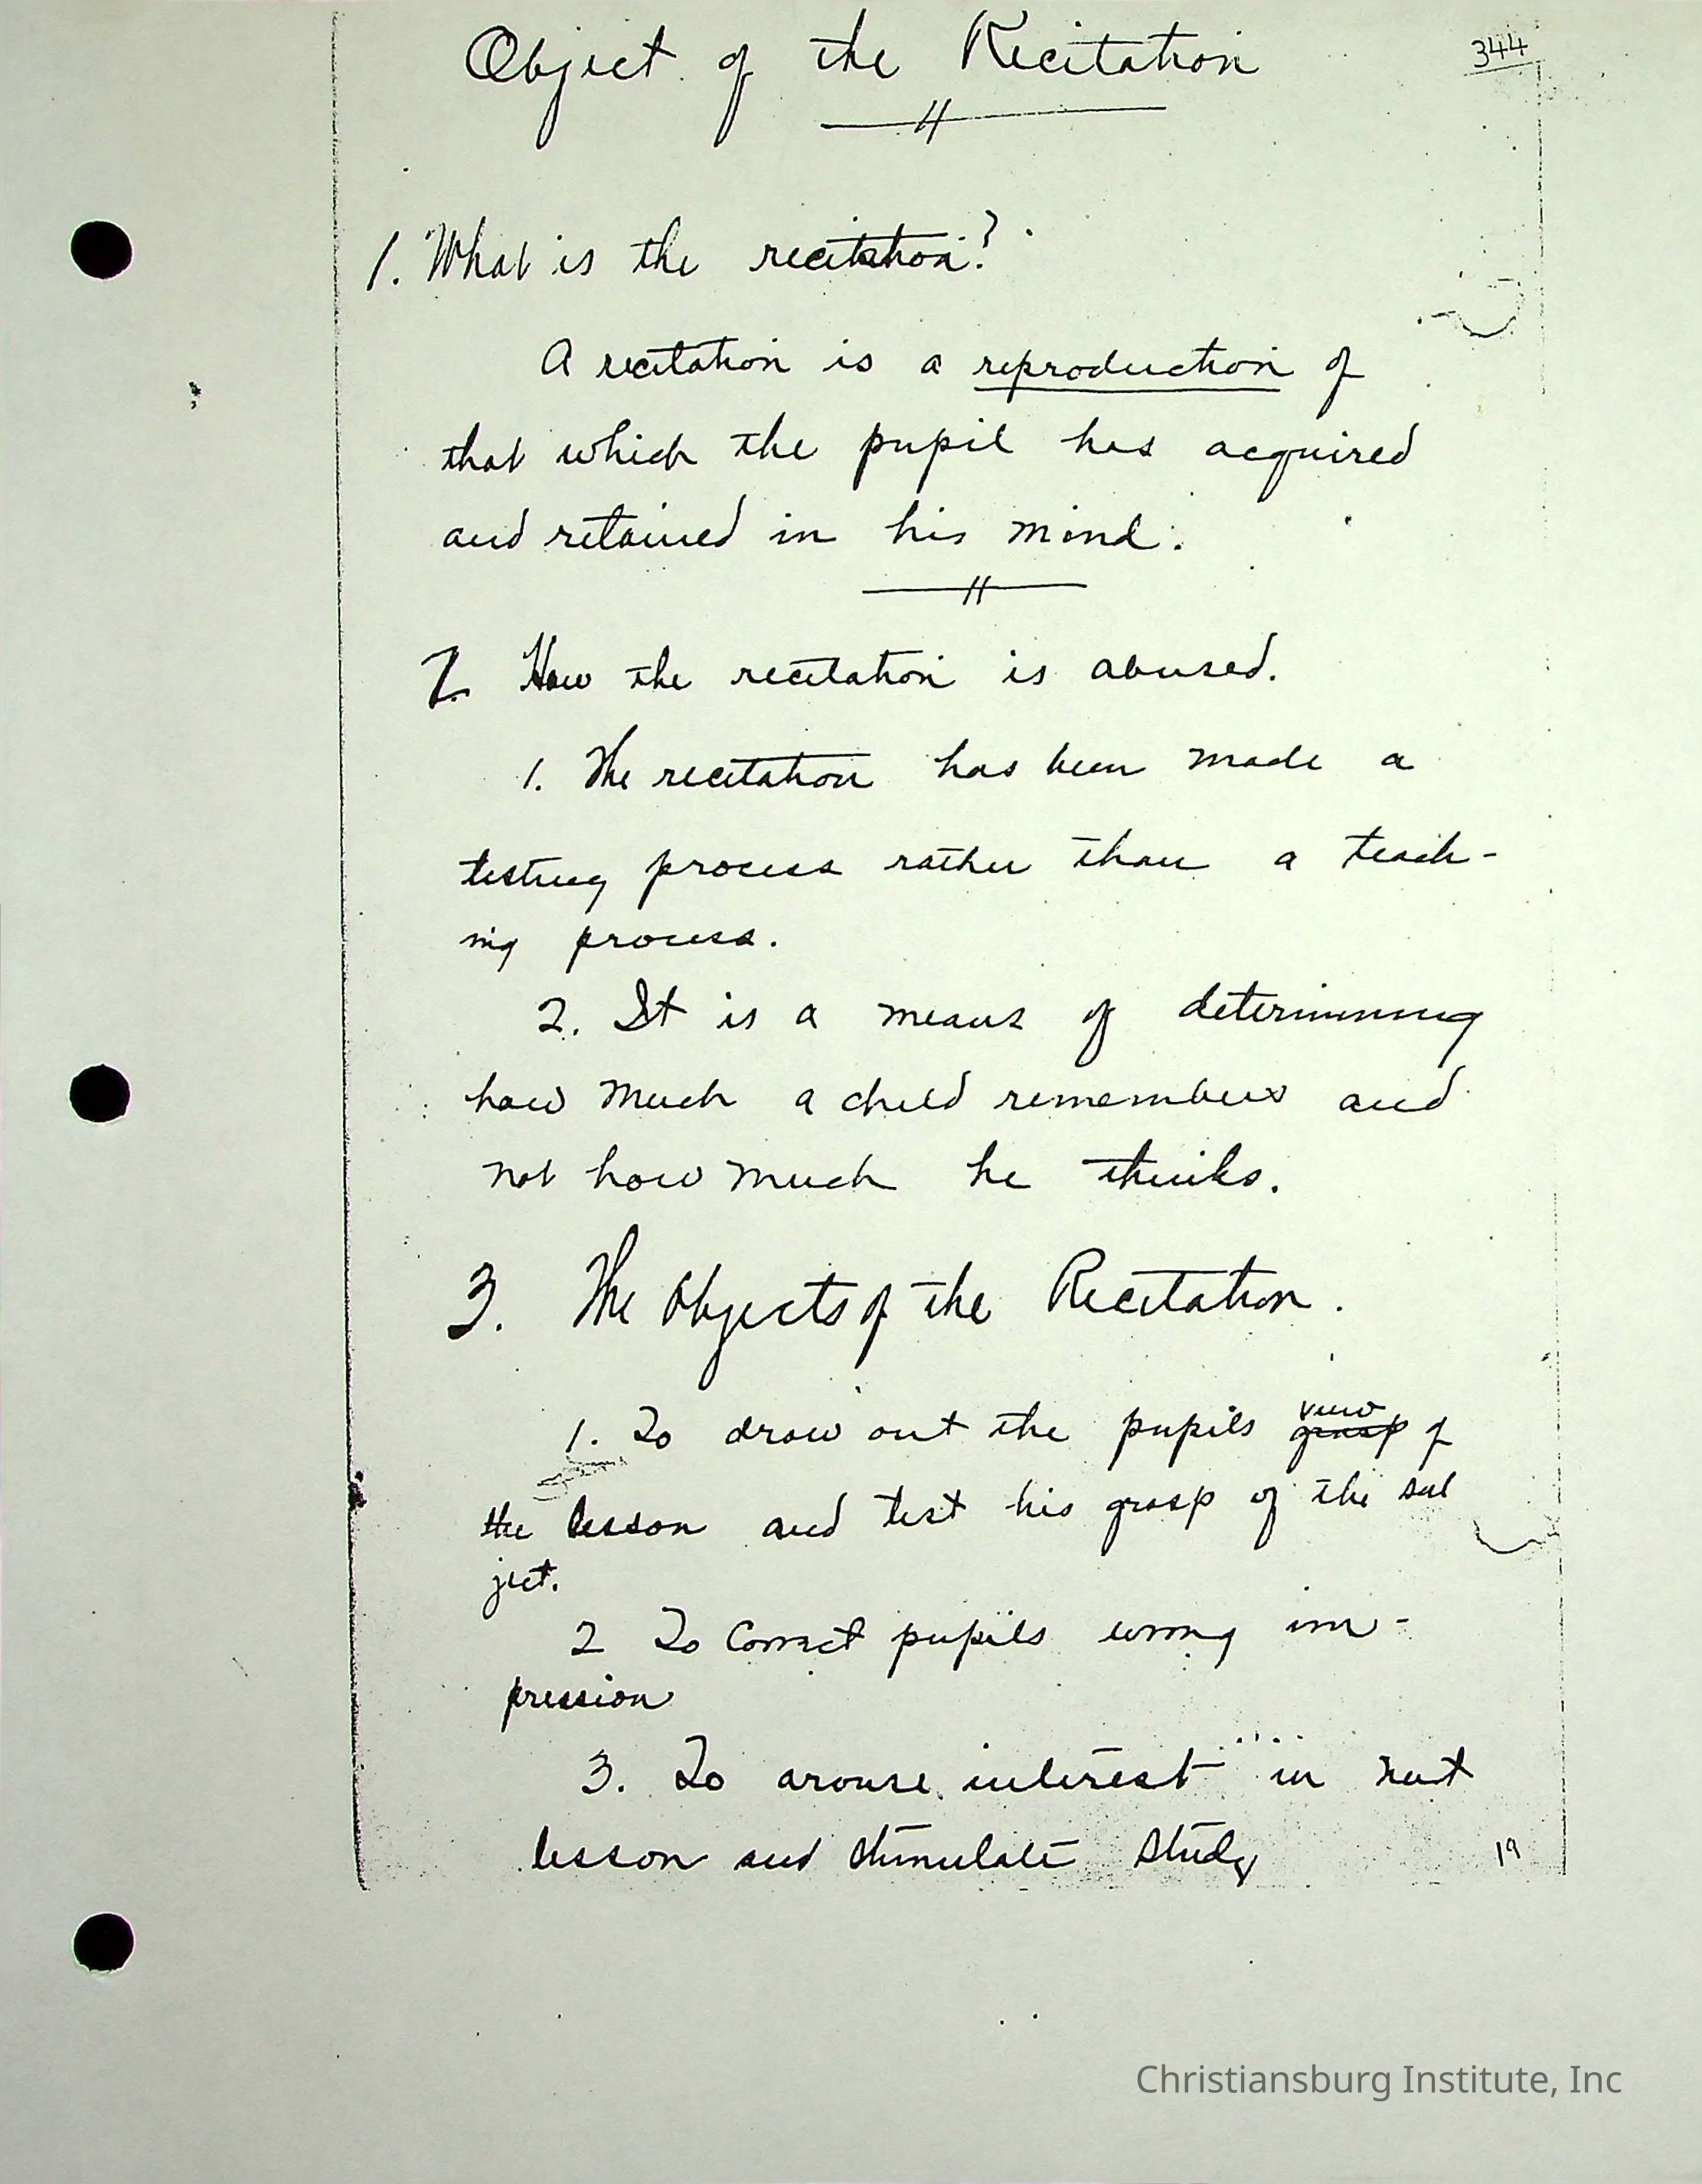 Object of the Recitation
344
1. What is the recitation?
A recitation is a reproduction of
that which the pupil has acquired
and retained in his mind.
2. How the recitation is abused.
1. The recitation has been made a
testing process rather than a teach-
ing process.
2. It is a means of determining
how much a child remembers and
not how much he thinks.
3. The Objects of the Recitation.
view
1. To draw out the pupils grasp of
the lesson and test his grasp of the sub
ject.
2 To Correct pupils wrong im-
pression
3. To arouse interest in next
lesson and stimulate study
19
Christiansburg Institute, Inc